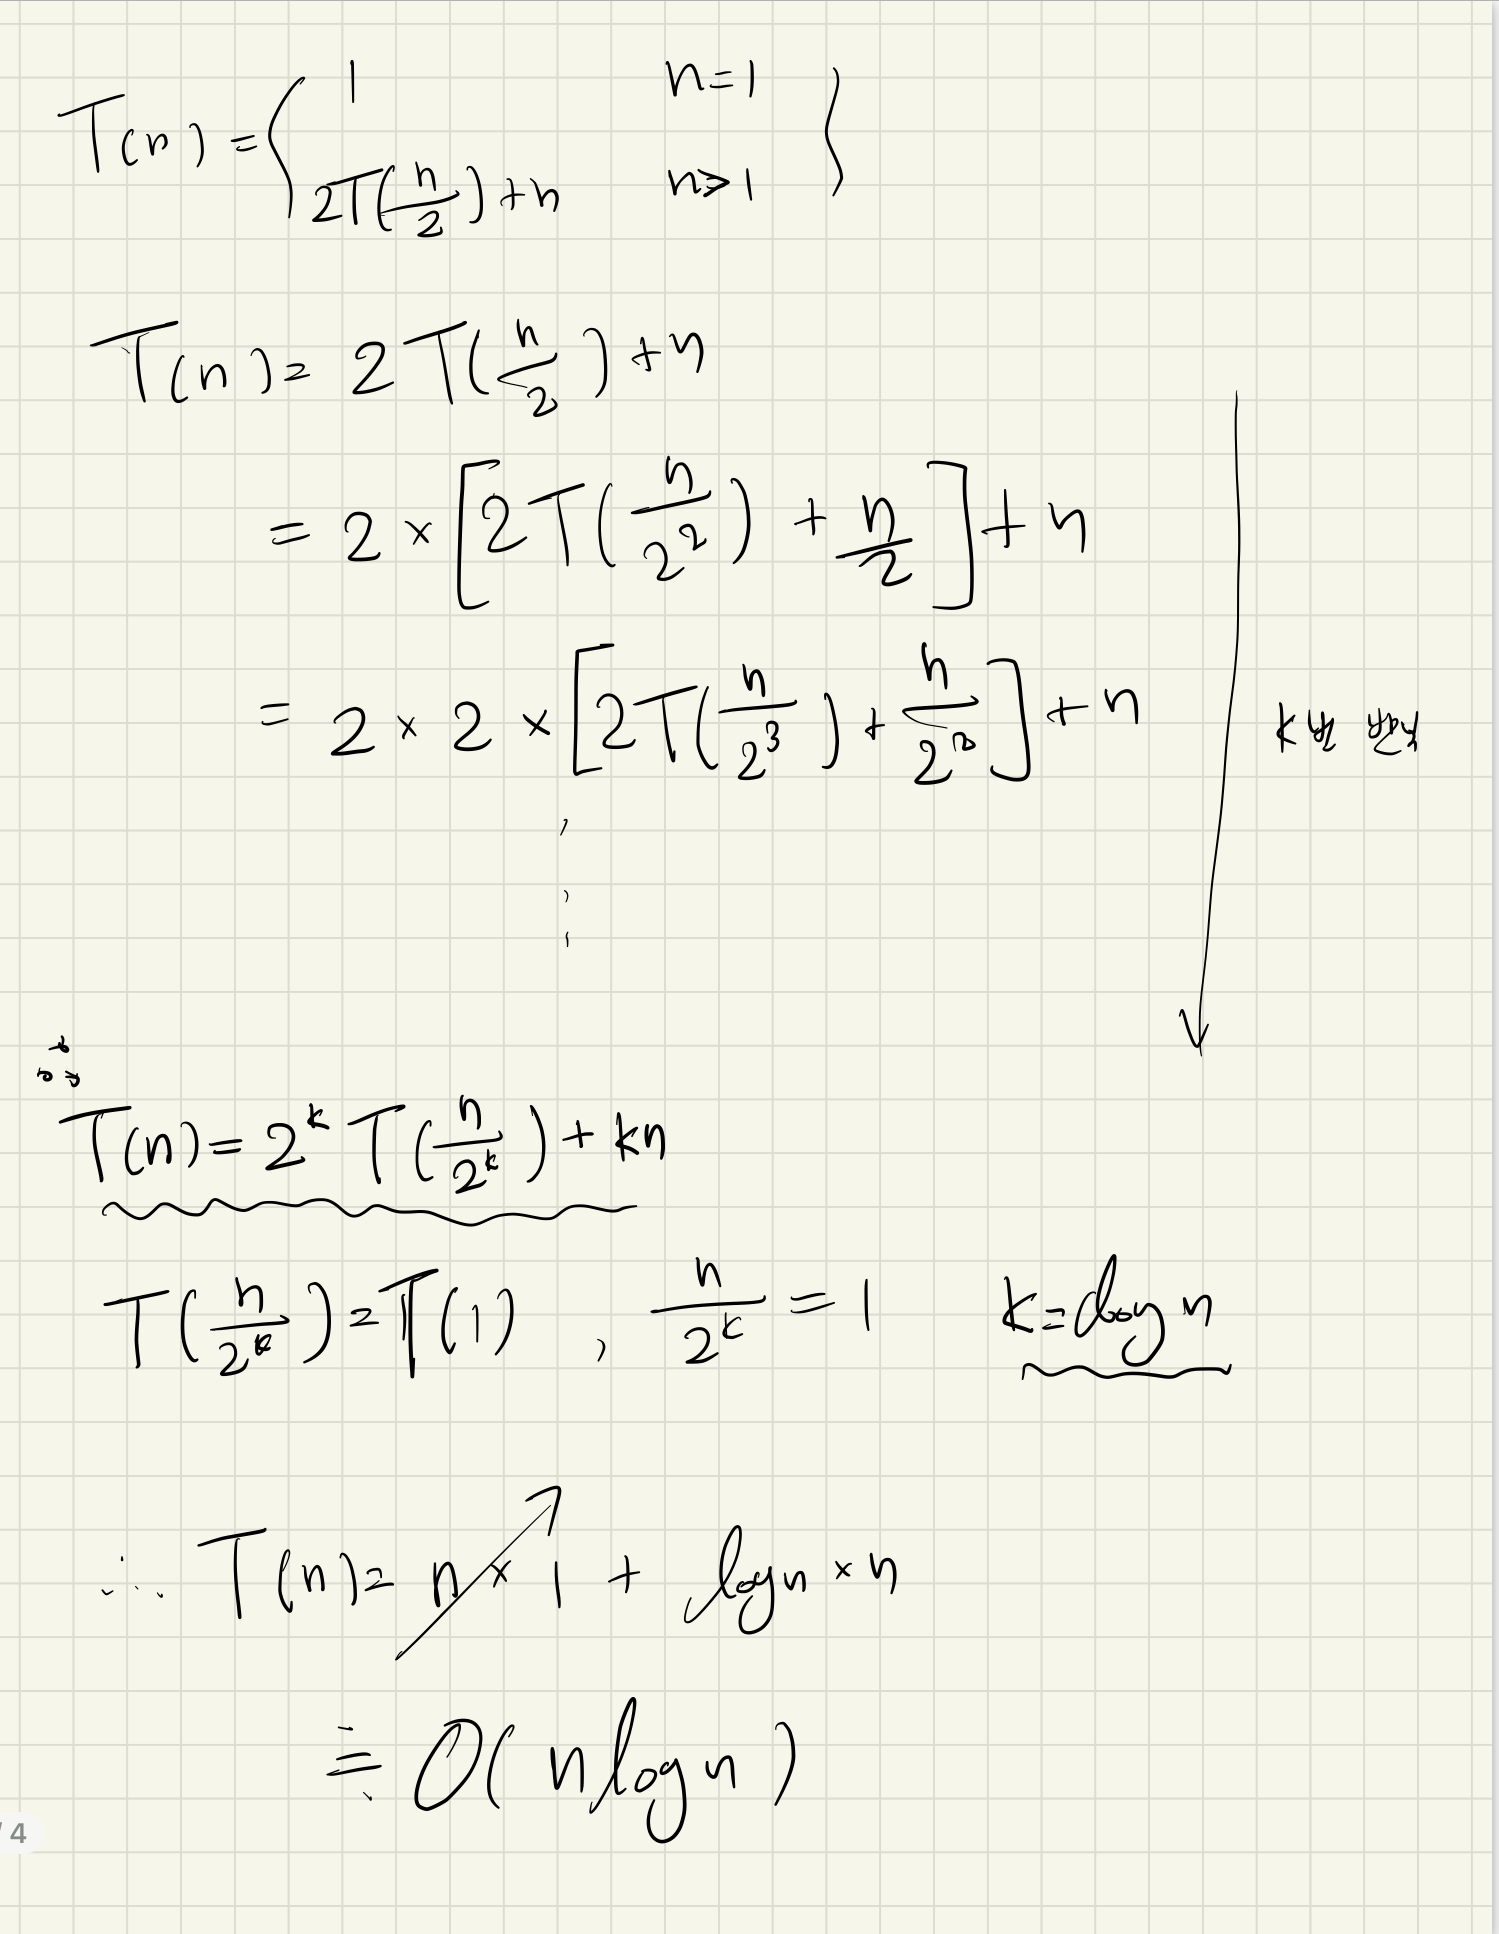 T(n) = { 1    n=1
2T(n/2)+n    n>1 }
T(n) = 2T(n/2)+n
= 2 × [2T(n/2^2) + n/2] + n
= 2 × 2 × [2T(n/2^3) + n/2^2] + n
⋮
k번 반복
T(n) = 2^k T(n/2^k) + kn
T(n/2^k) = T(1) , n/2^k = 1    k = log n
∴ T(n) = n × 1 + log n × n
≒ O(n log n)
/ 4